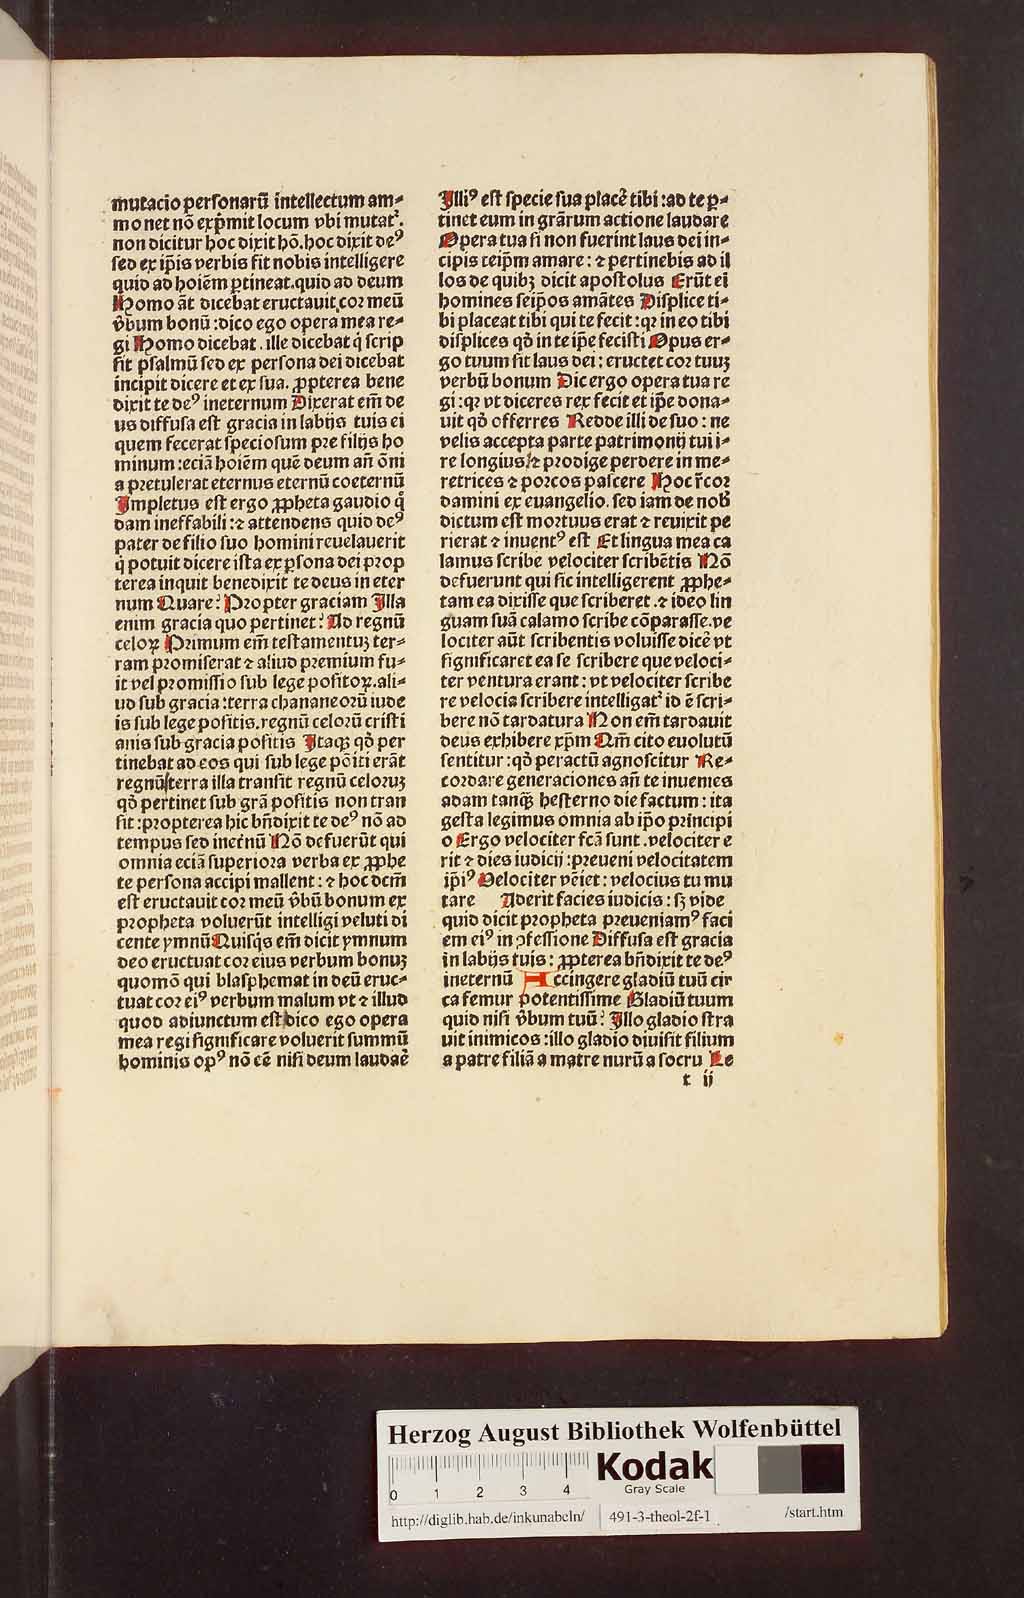 mutacio personarū intellectum am⸗
monet nō exp̄mit locum vbi mutat᷑.
non dicitur hoc dixit hō. hoc dixit deꝰ
sed ex ip̄is verbis fit nobis intelligere
quid ad hoiēm ꝑtineat. quid ad deum
Homo āt dicebat eructauit cor meū
v̄bum bonū : dico ego opera mea re⸗
gi Homo dicebat . ille dicebat q̇ scrip
sit psalmū sed ex persona dei dicebat
incipit dicere et ex sua. ꝓpterea bene
dixit te deꝰ ineternum Dixerat em̄ de
us diffusa est gracia in labijs tuis ei
quem fecerat speciosum pre filijs ho
minum : eciā hoiēm quē deum an̄ ōni
a pretulerat eternus eternū coeternū
Impletus est ergo ꝓpheta gaudio q̇̄
dam ineffabili : ⁊ attendens quid deꝰ
pater de filio suo homini reuelauerit
q̇ potuit dicere ista ex ꝑsona dei prop
terea inquit benedixit te deus in eter
num Quare? Propter graciam Illa
enim gracia quo pertinet? Ad regnū
celoꝝ Primum em̄ testamentuꝫ ter⸗
ram promiserat ⁊ aliud premium fu⸗
it vel promissio sub lege positoꝝ. ali⸗
ud sub gracia : terra chananeorū iude
is sub lege positis. regnū celorū cristi
anis sub gracia positis Itaqꝫ qd̓ per
tinebat ad eos qui sub lege pōiti erāt
regnū terra illa transit regnū celoruꝫ
qd̓ pertinet sub grā positis non tran
sit : propterea hic bn̄dixit te deꝰ nō ad
tempus sed inet̓nū Nō defuerūt qui
omnia eciā superiora verba ex ꝓphe
te persona accipi mallent : ⁊ hoc dcm̄
est eructauit cor meū v̄bū bonum ex
propheta voluerūt intelligi veluti di
cente ymnū Quisq̇s em̄ dicit ymnum
deo eructuat cor eius verbum bonuꝫ
quomō qui blasphemat in deū eruc⸗
tuat cor eiꝰ verbum malum vt ⁊ illud
quod adiunctum est dico ego opera
mea regi significare voluerit summū
hominis opꝰ nō eē nisi deum laudaē
Illiꝰ est specie sua placē tibi : ad te ꝑ⸗
tinet eum in grārum actione laudare
Opera tua si non fuerint laus dei in⸗
cipis teip̄m amare : ⁊ pertinebis ad il
los de quibꝫ dicit apostolus Erūt ei
homines seip̄os amātes Displice ti⸗
bi placeat tibi qui te fecit : qꝛ in eo tibi
displices qd̓ in te ip̄e fecisti Opus er⸗
go tuum sit laus dei : eructet cor tuuꝫ
verbū bonum Dic ergo opera tua re
gi : qꝛ vt diceres rex fecit et ip̄e dona⸗
uit qd̓ offerres Redde illi de suo : ne
velis accepta parte patrimonij tui i⸗
re longius ⁊ prodige perdere in me⸗
retrices ⁊ porcos pascere Hoc r̄cor
damini ex euangelio. sed iam de nob̄
dictum est mortuus erat ⁊ reuixit pe
rierat ⁊ inuentꝰ est Et lingua mea ca
lamus scribe velociter scribētis Nō
defuerunt qui sic intelligerent ꝓphe⸗
tam ea dixisse que scriberet . ⁊ ideo lin
guam suā calamo scribe cōparasse. ve
lociter aūt scribentis voluisse dicē vt
significaret ea se scribere que veloci⸗
ter ventura erant : vt velociter scribe
re velocia scribere intelligat᷑ id ē scri⸗
bere nō tardatura Non em̄ tardauit
deus exhibere xp̄m Qm̄ cito euolutū
sentitur : qd̓ peractū agnoscitur Re⸗
cordare generaciones an̄ te inuenies
adam tanqꝫ hesterno die factum : ita
gesta legimus omnia ab ip̄o principi
o Ergo velociter fcā sunt . velociter e
rit ⁊ dies iudicij : preueni velocitatem
ip̄iꝰ Velociter vēiet : velocius tu mu
tare Aderit facies iudicis : sꝫ vide
quid dicit propheta preueniamꝰ faci
em eiꝰ in ꝯfessione Diffusa est gracia
in labijs tuis : ꝓpterea bn̄dixit te deꝰ
ineternū Accingere gladiū tuū cir
ca femur potentissime Gladiū tuum
quid nisi v̄bum tuū? Illo gladio stra
uit inimicos : illo gladio diuisit filium
a patre filiā a matre nurū a socru Le
t ij
Herzog August Bibliothek Wolfenbüttel
0 1 2 3 4
Kodak
Gray Scale
http://diglib.hab.de/inkunabeln/ 491-3-theol-2f-1 /start.htm